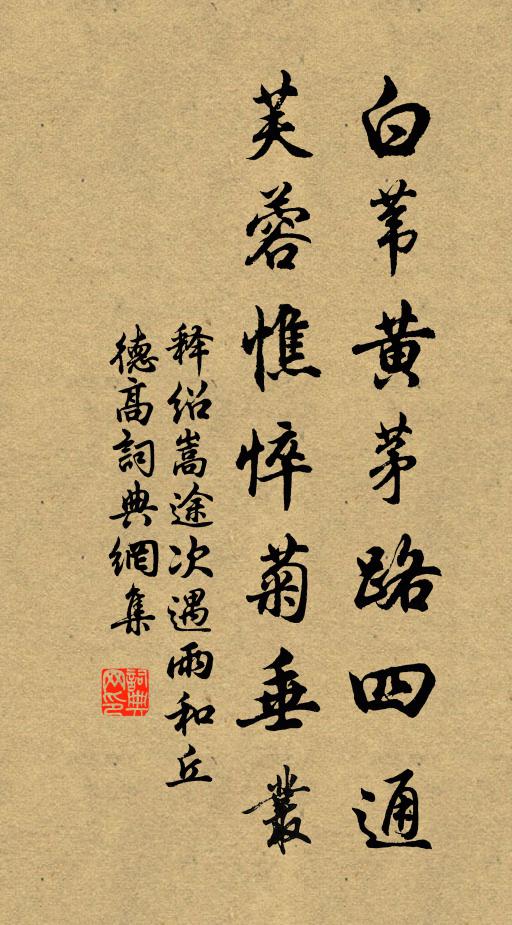 白苇黄茅路四通
芙蓉憔悴菊垂叢
释绍嵩途次遇雨和丘
德高詞典網集
詞典网印